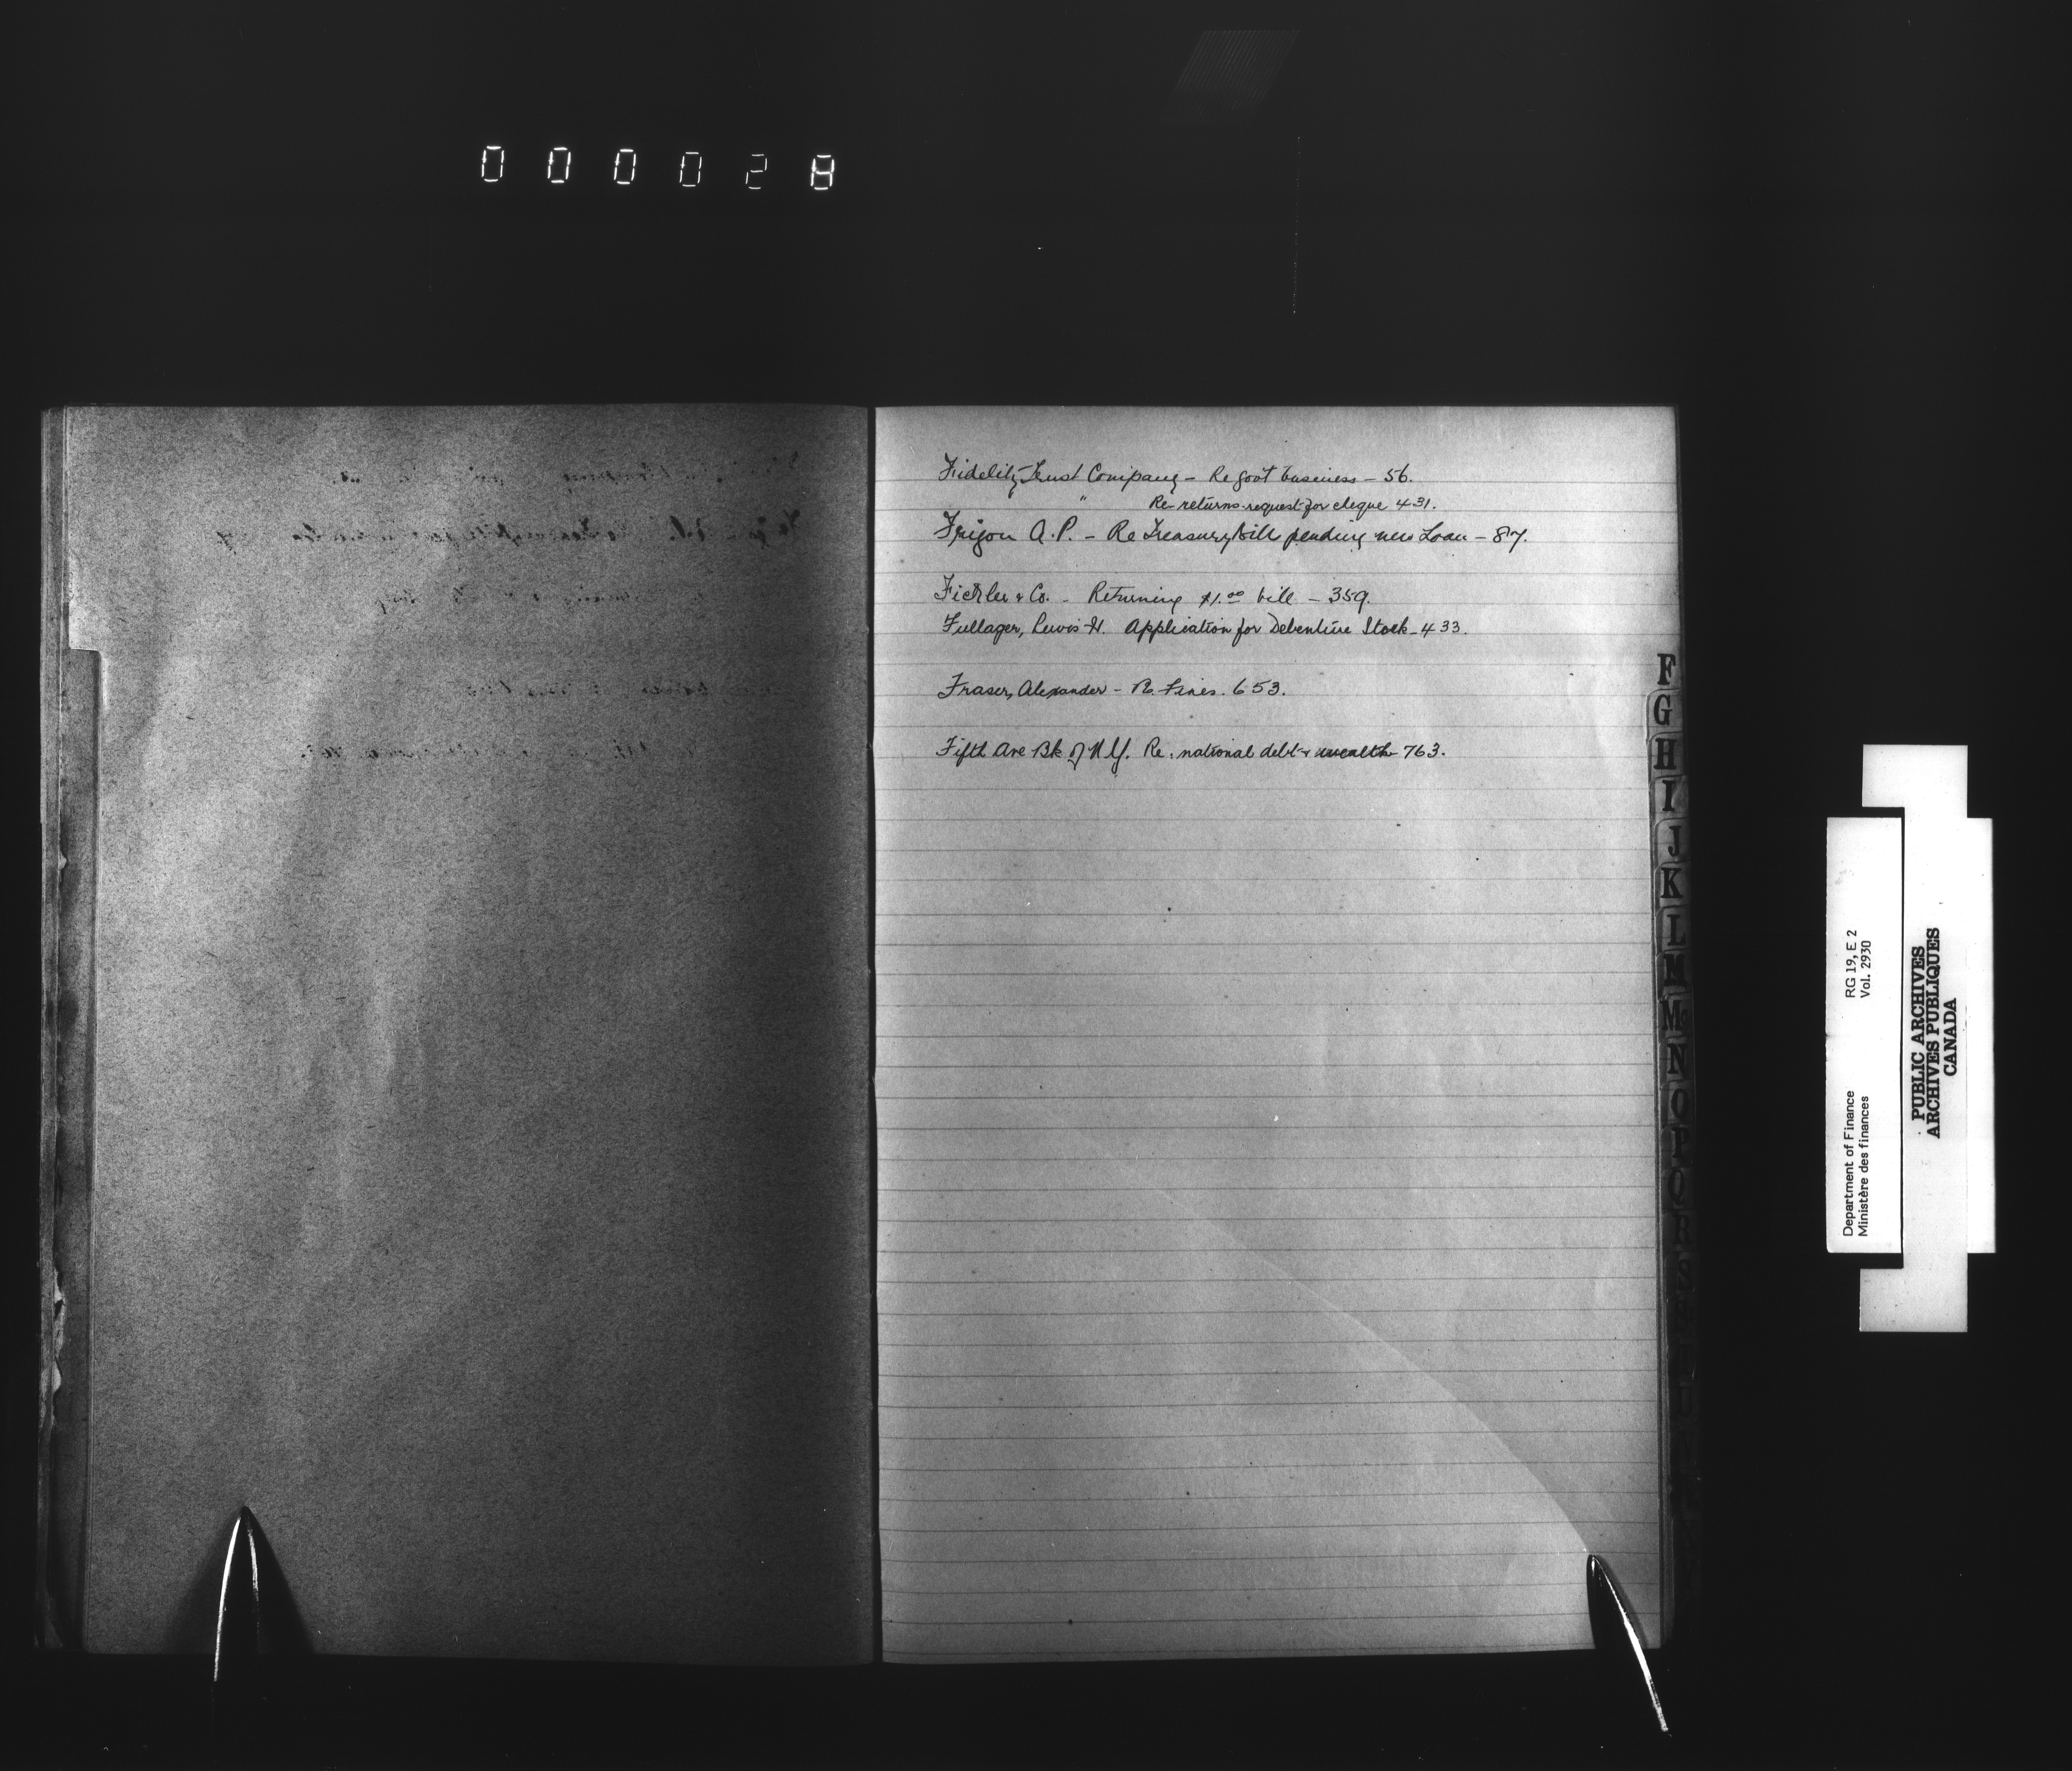 000028
Fidelity Trust Company - Re Govt business - 56.
" Re returns request for cheque 431.
Frigon A.P. - Re Treasury bill pending new Loan - 87.
& Co. - Returning $1.00 bill - 359.
Fullager, Lewis H. Application for Debenture Stock - 433.
Fraser, Alexander - Re Fines. 653.
Fifth Ave Bk of N.Y. Re: national debt & wealth 763.
F
G
H
I
J
K
L
M
Mc
N
O
P
Q
R
S
Department of Finance RG 19, E 2
Ministère des finances Vol. 2930
PUBLIC ARCHIVES
ARCHIVES PUBLIQUES
CANADA